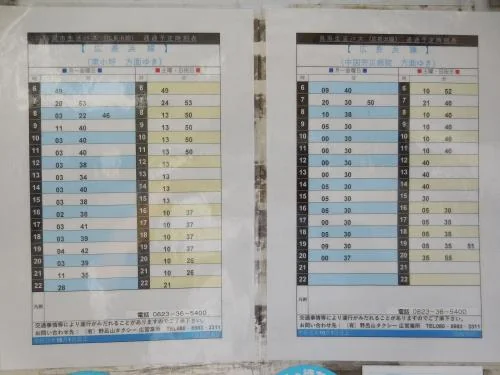 呉市生活バス（広長浜線） 通過予定時刻表
【 広 長 浜 線 】
（東小坪 方面ゆき）
■月～金曜日■ ■土曜・日祝日■
時 時
6 49 6 49
7 20 53 7 24 53
8 03 22 46 8 10 50
9 11 40 9 10 50
10 03 40 10 10 50
11 03 40 11 10 50
12 03 38 12 13
13 03 34 13 13
14 03 40 14 13
15 03 40 15 13
16 02 38 16 10 37
17 03 41 17 10 37
18 03 39 18 10 37
19 04 42 19 10 37
20 03 39 20 10 26
21 11 35 21 10 26
22 28 22 21
凡例
電話 0823-36-5400
交通事情等により運行がみだれることがありますのでご了承下さい。
お問い合わせ先：（有）野呂山タクシー 広営業所
呉市生活バス（広長浜線） 通過予定時刻表
【 広 長 浜 線 】
（中国労災病院 方面ゆき）
■月～金曜日■ ■土曜・日祝日■
時 時
6 09 40 6 10 52
7 20 30 50 7 21 40
8 10 38 8 10 40
9 00 30 9 10 40
10 00 30 10 10 40
11 00 30 11 10 40
12 00 38 12 40
13 00 30 13 40
14 05 30 14 40
15 00 30 15 40
16 00 30 16 05 30
17 05 30 17 05 30
18 00 30 18 05 30
19 00 30 19 05 35
20 00 37 20 35 55
21 21
22 22
凡例
電話 0823-36-5400
交通事情等により運行がみだれることがありますのでご了承下さい。
お問い合わせ先：（有）野呂山タクシー 広営業所